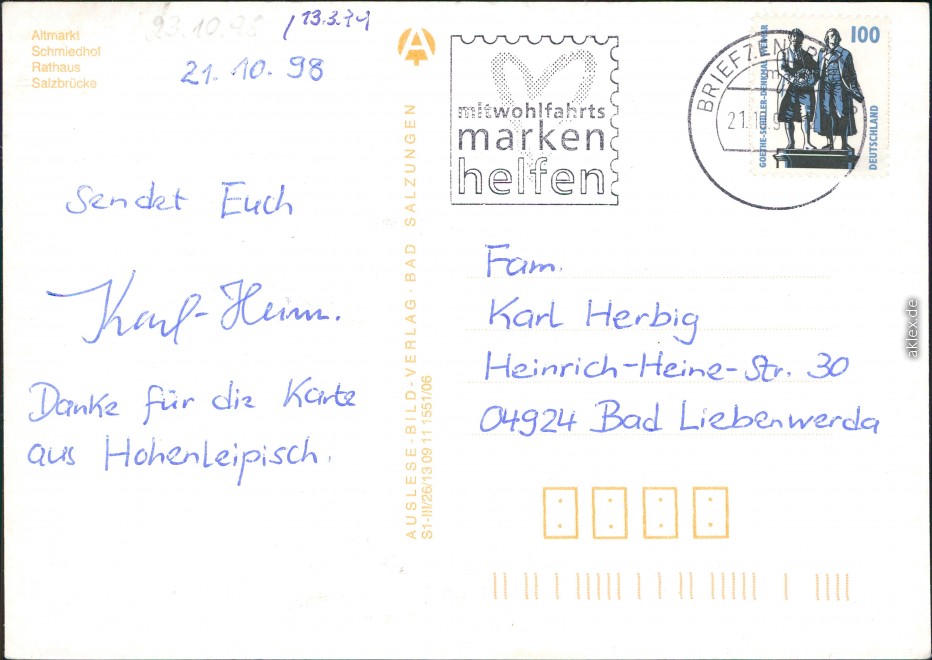 Altmarkt
Schmiedhof
Rathaus
Salzbrücke
23.10.98
13.3.79
21.10.98
Sendet Euch
Karl-Heinz.
Danke für die Karte
aus Hohenleipisch.
AUSLESE-BILD-VERLAG · BAD SALZUNGEN
S1-III/26/13 09 11 1551/06
mitwohlfahrts
marken
helfen
BRIEFZEN
21.1
GOETHE-SCHILLER-DENKMAL WEIMAR
100
DEUTSCHLAND
Fam.
Karl Herbig
Heinrich-Heine-Str. 30
04924 Bad Liebenwerda
aklex.de